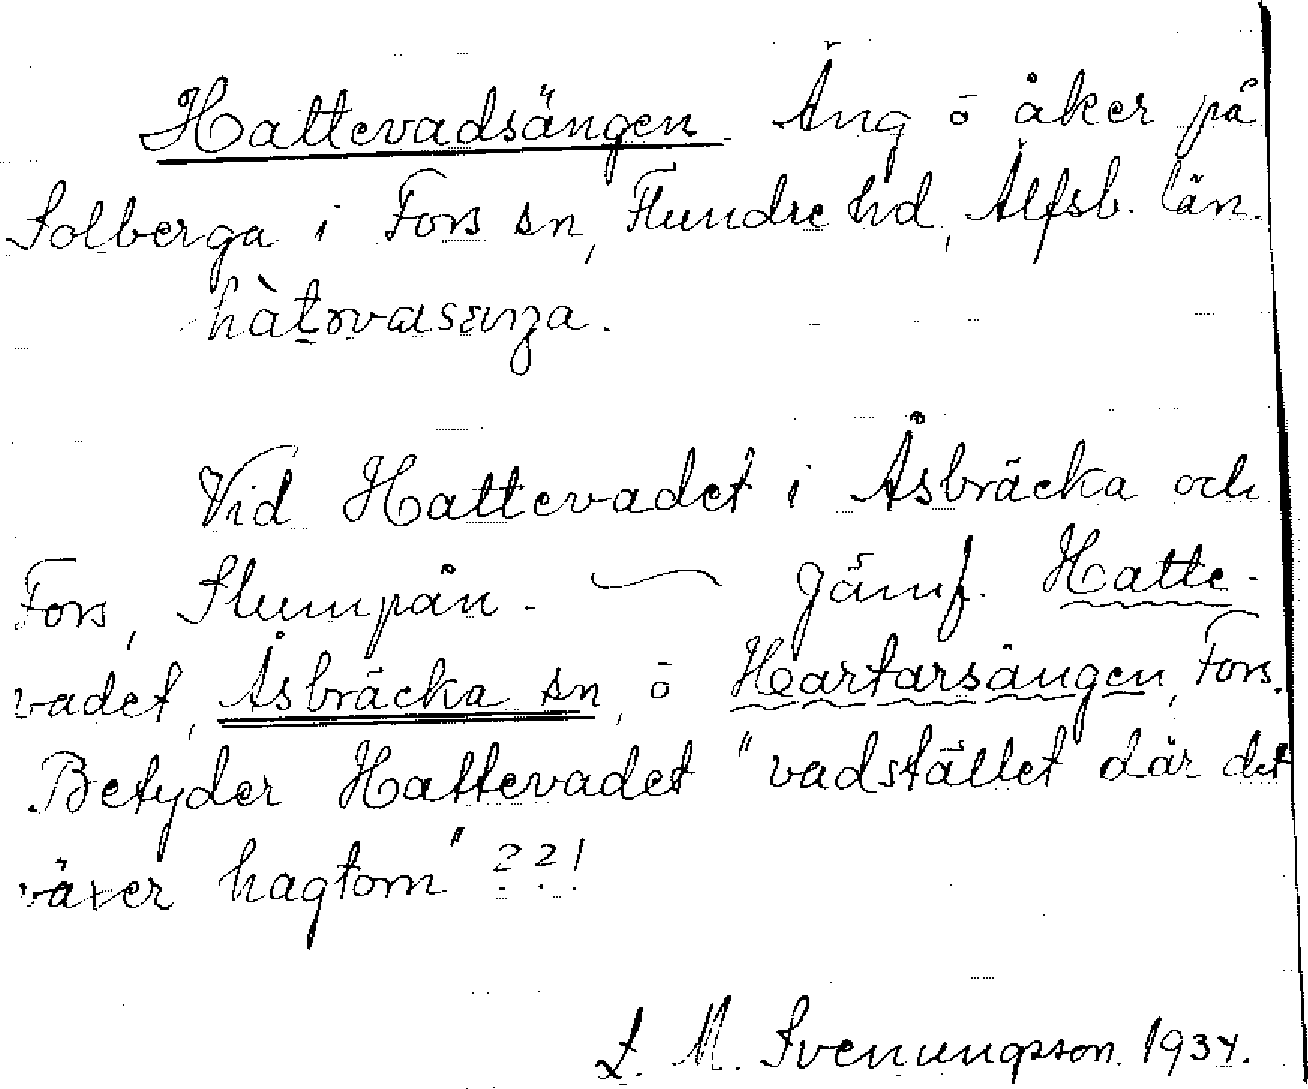 Hattevadsängen. Äng ö åker på
Solberga i Fors sn, Flundre hd, Älfsb. län.
Vid Hattevadet i Åsbräcka och
Fors, Slumpån. — Jämf. Hatte-
vadet, Åsbräcka sn, ö Heartarsängen, Fors.
Betyder Hattevadet "vadstället där det
växer hagtorn"??!
L. M. Svenungsson. 1934.